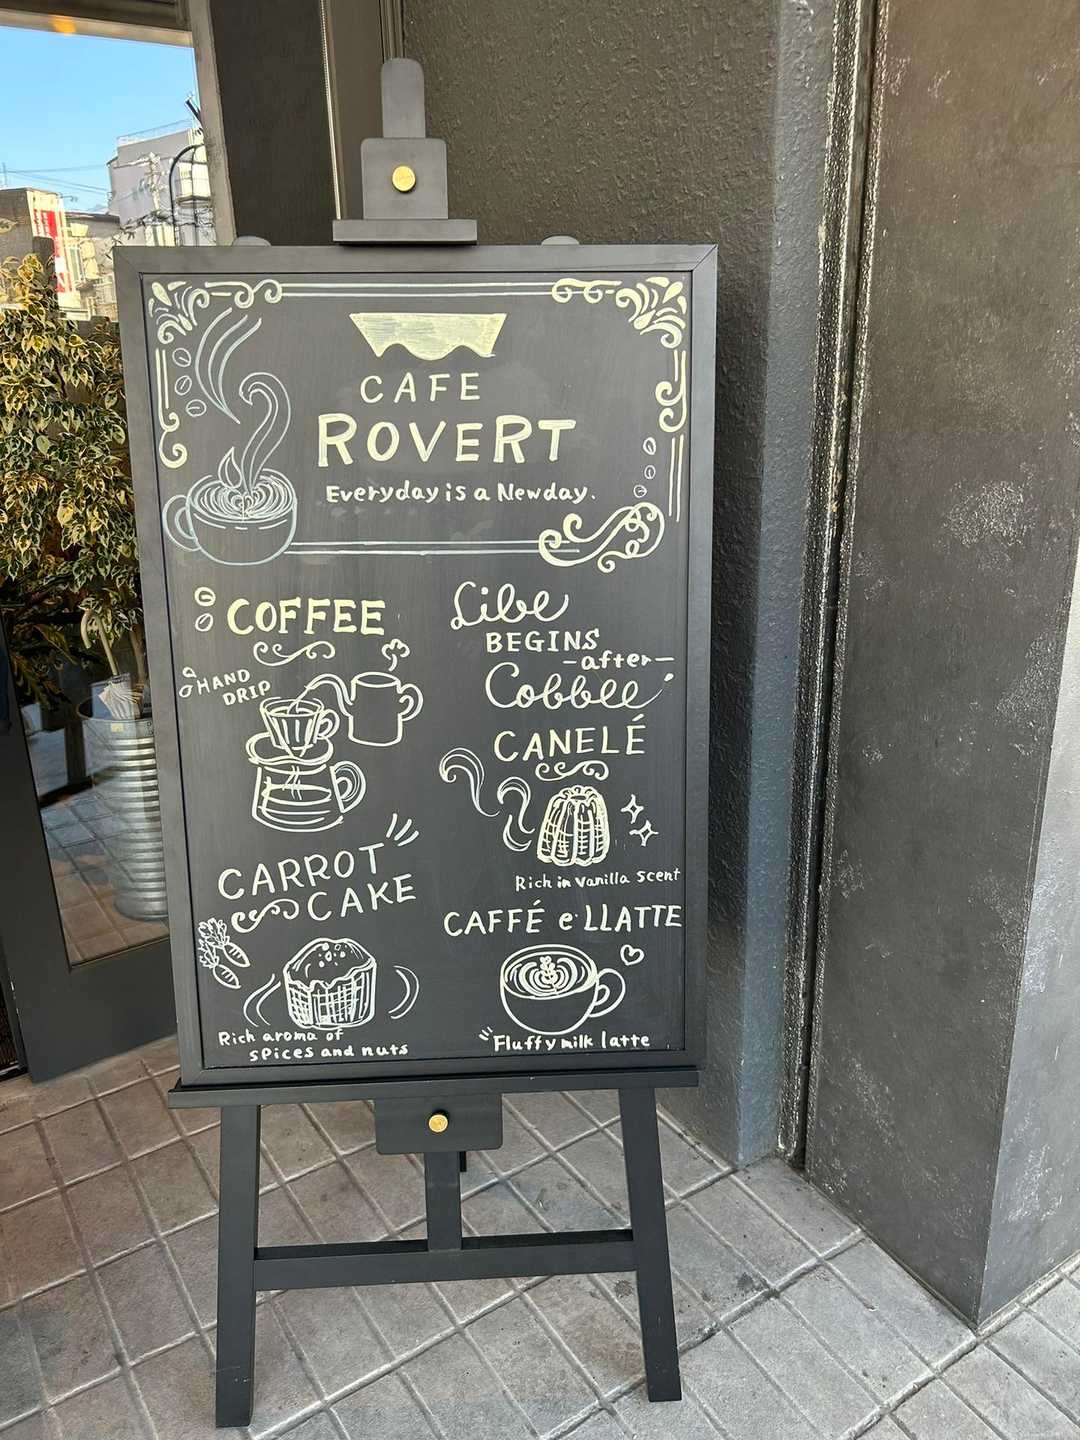 CAFE
ROVERT
Everyday is a Newday.
COFFEE
HAND
DRIP
CARROT
CAKE
Rich aroma of
spices and nuts
Libe
BEGINS
-after-
Cobbee
CANELÉ
Rich in vanilla scent
CAFFÉ e LLATTE
Fluffy milk latte